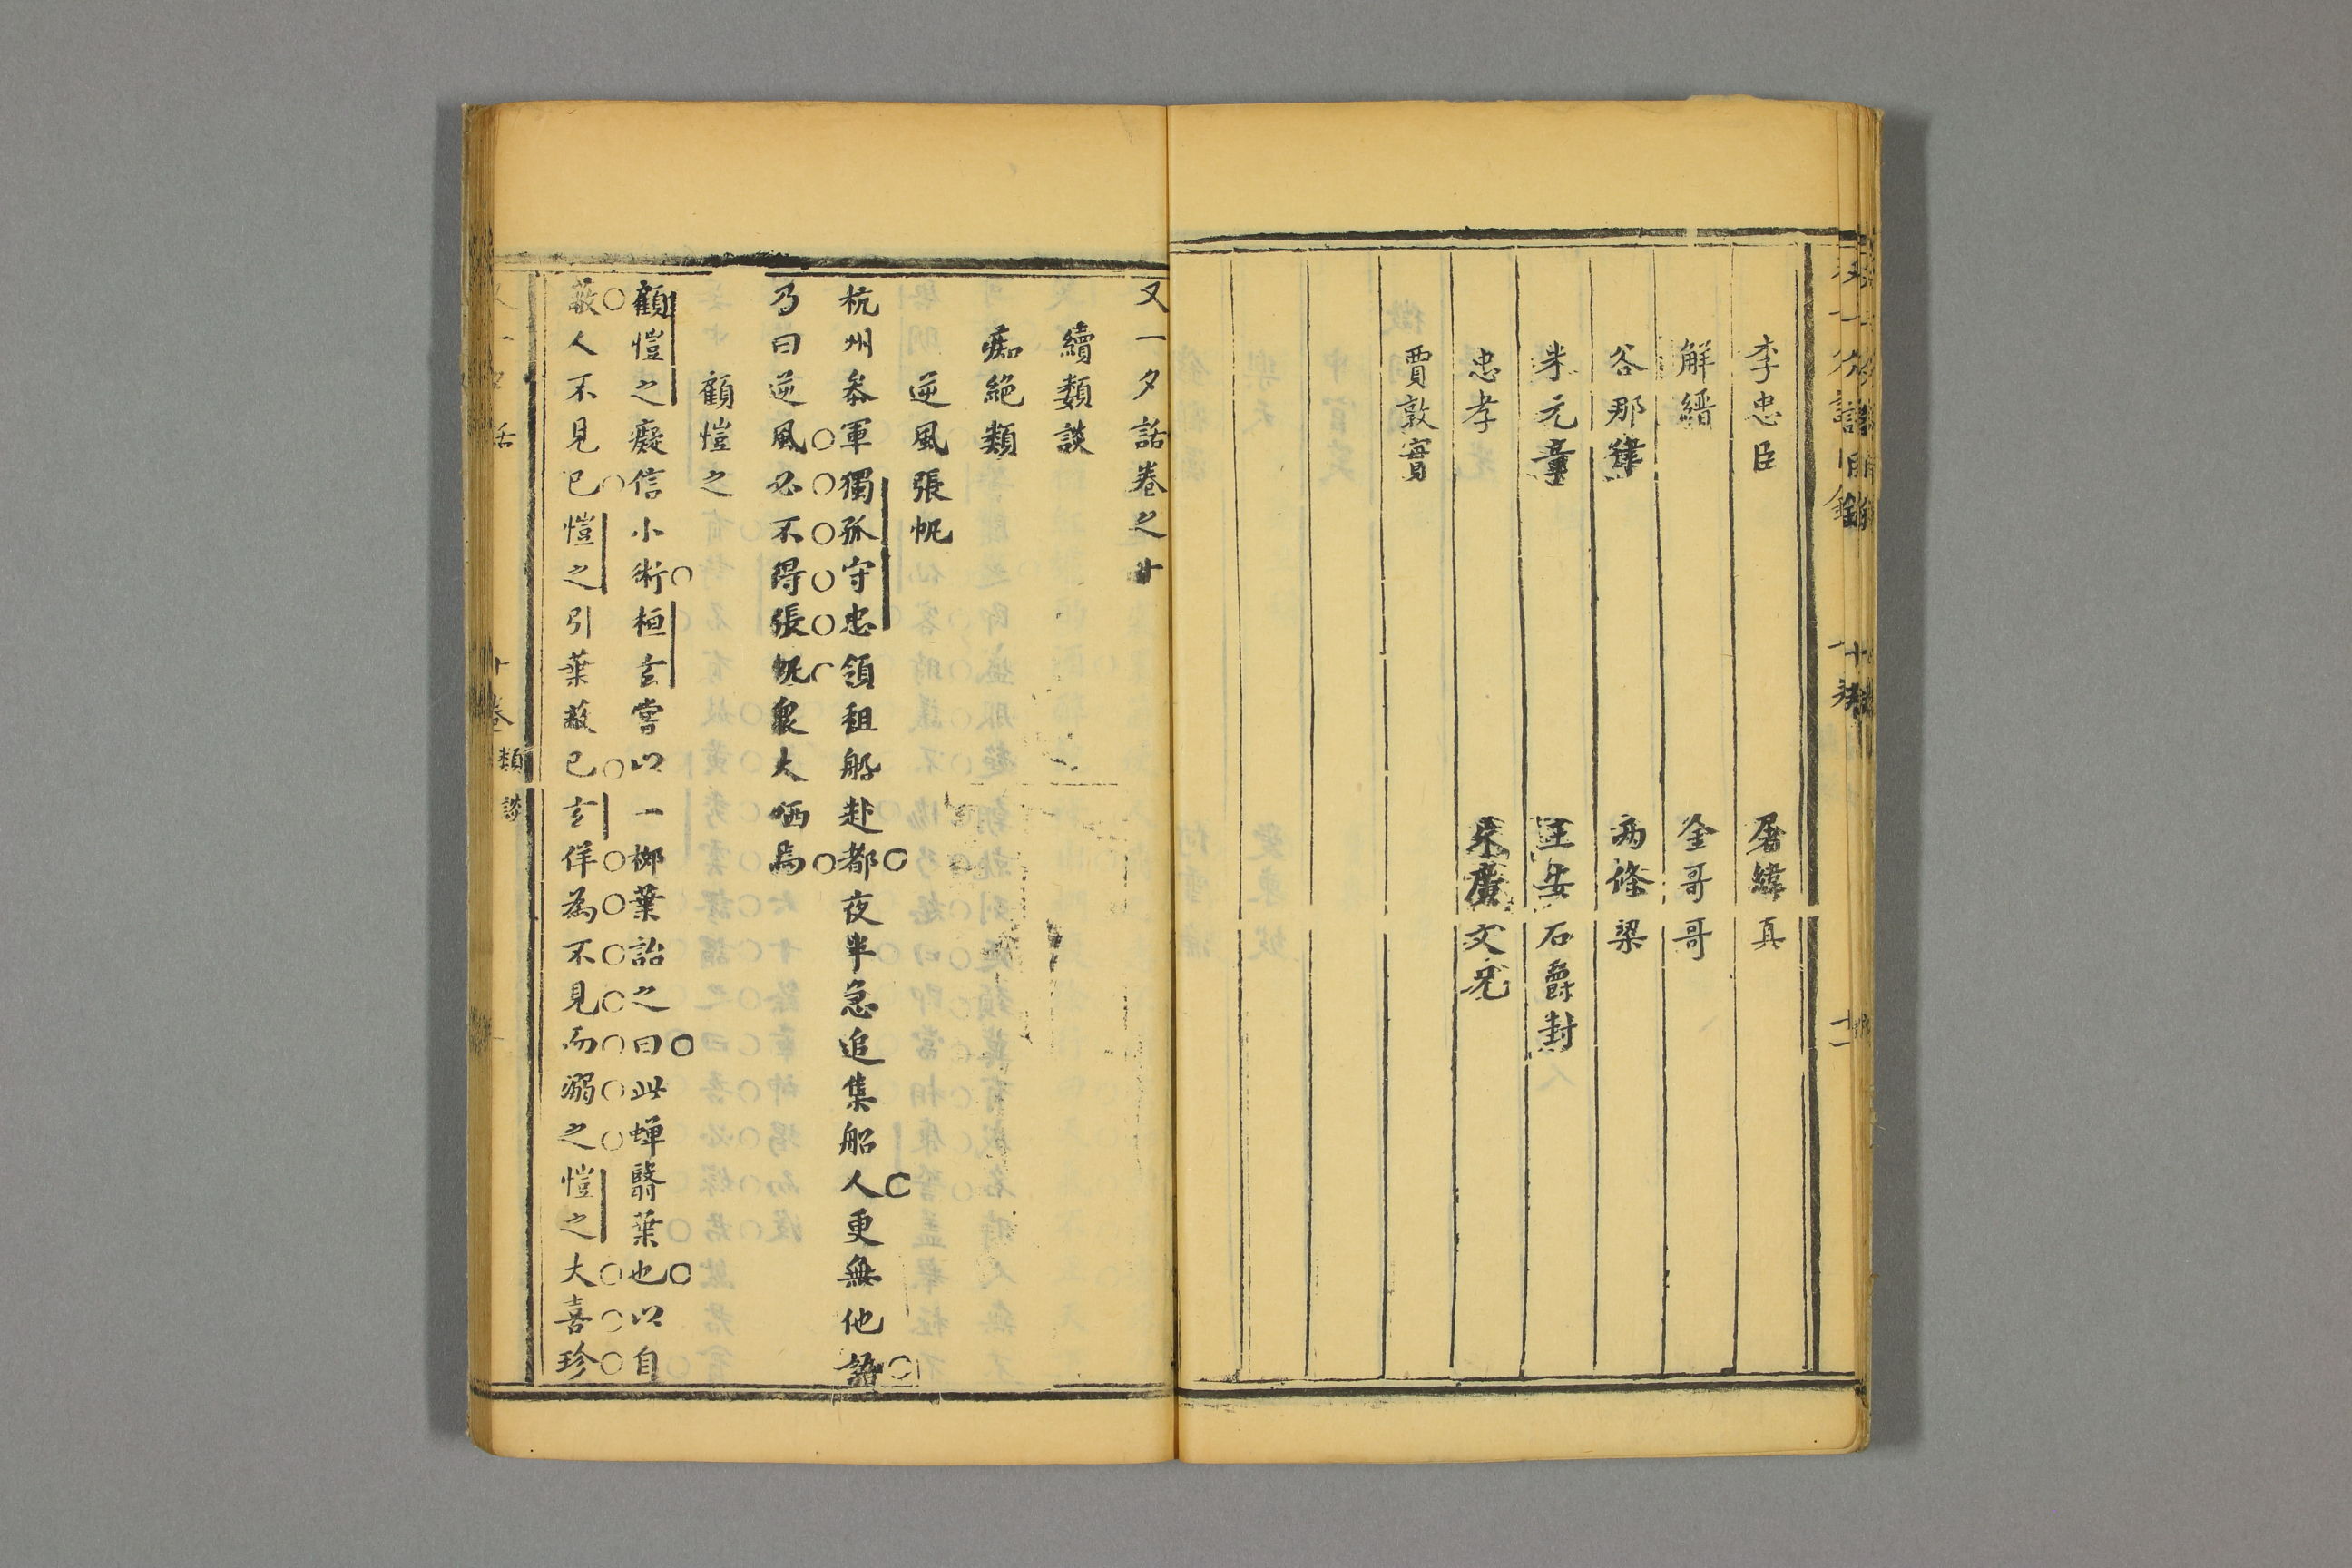 李忠臣 屠緯真
解縉 金哥哥
谷那律 兩條梁
米元章 王安石爵封
忠孝 朱廣文兎
賈敦實
又一夕話卷之十
續類談
痴絕類
逆風張帆
杭州叅軍獨孤守忠領租船赴都夜半急追集船人更無他語
乃曰逆風必不得張帆衆大哂焉
顧愷之
顧愷之癡信小術桓玄嘗以一柳葉詒之曰此蟬翳葉也以自
蔽人不見已愷之引葉蔽已玄佯為不見而溺之愷之大喜珍
又一夕話 十卷 類談